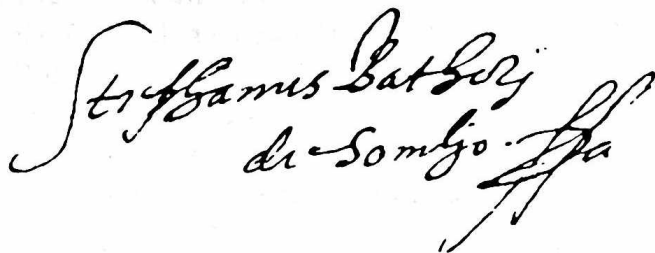 Stephanus Bathorj
de Somljo